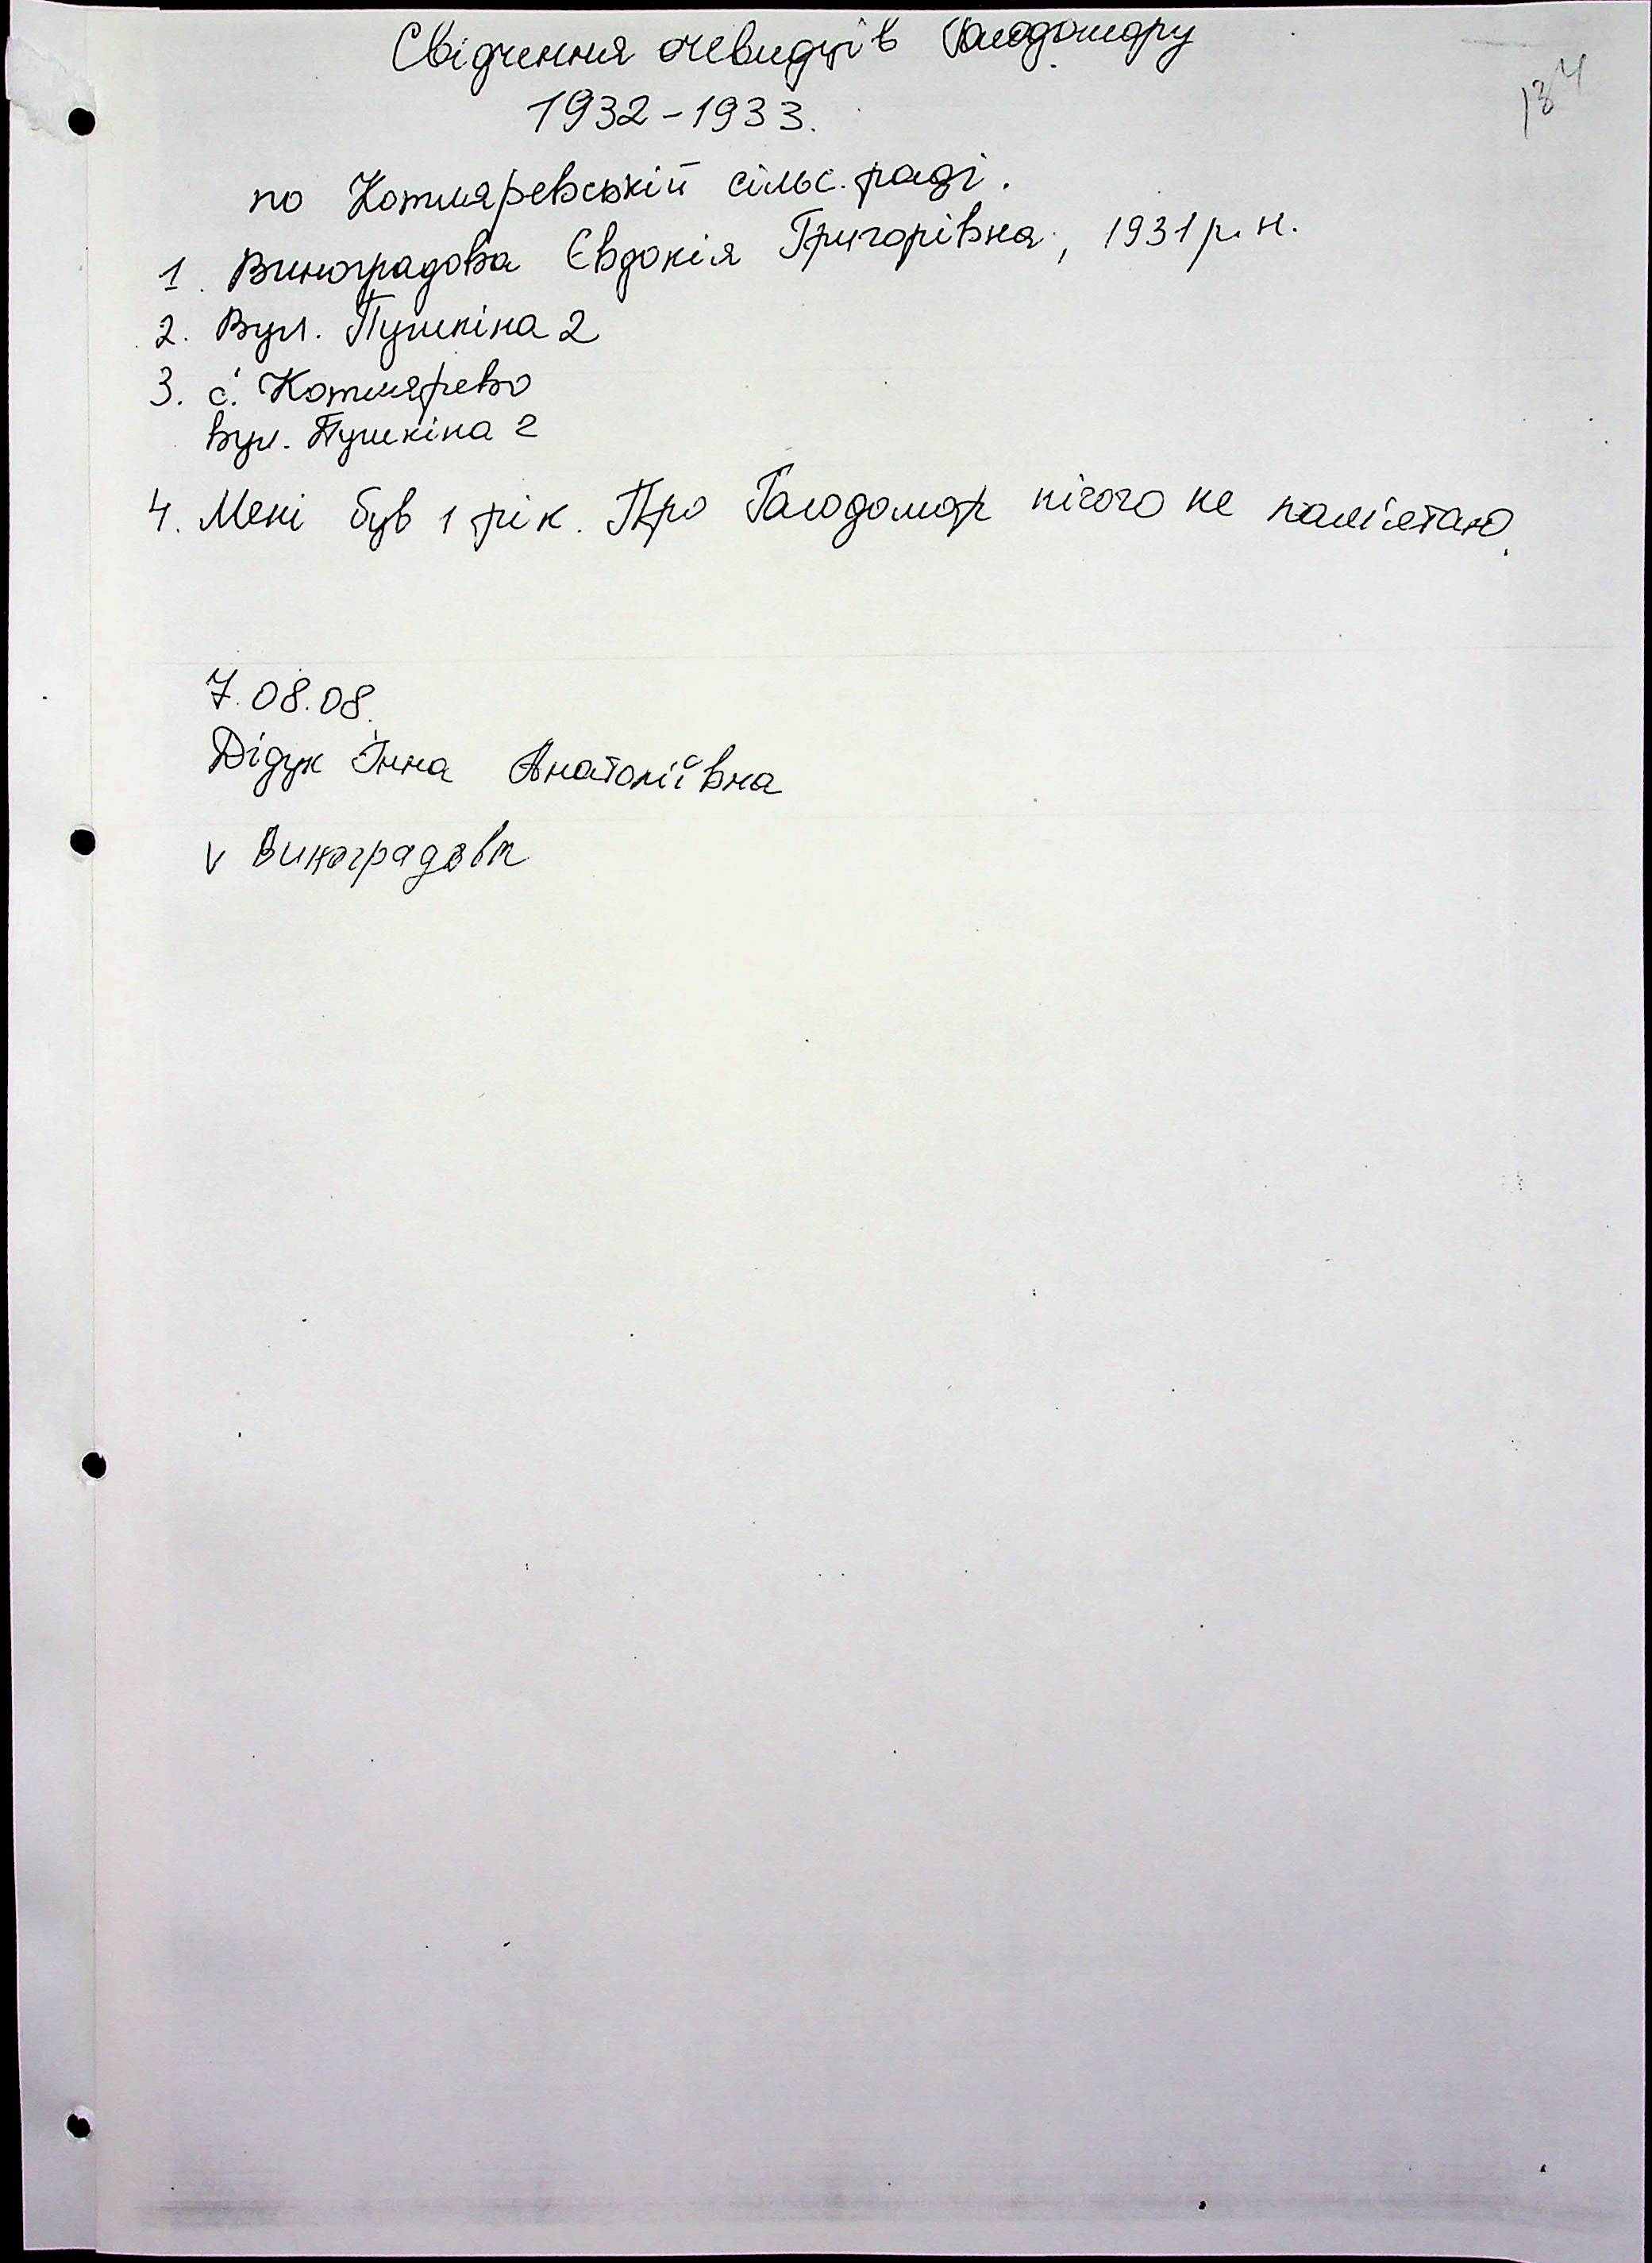 Свідчення очевидців Голодомору
134
1932-1933.
по Котляревській сільс. раді.
1. Виноградова Євдокія Григорівна, 1931 р. н.
2. Вул. Пушкіна 2
3. с. Котлярево
вул. Пушкіна 2
4. Мені був 1 рік. Про Голодомор нічого не пам'ятаю.
7.08.08.
Дідук Інна Анатоліївна
v Виноградова